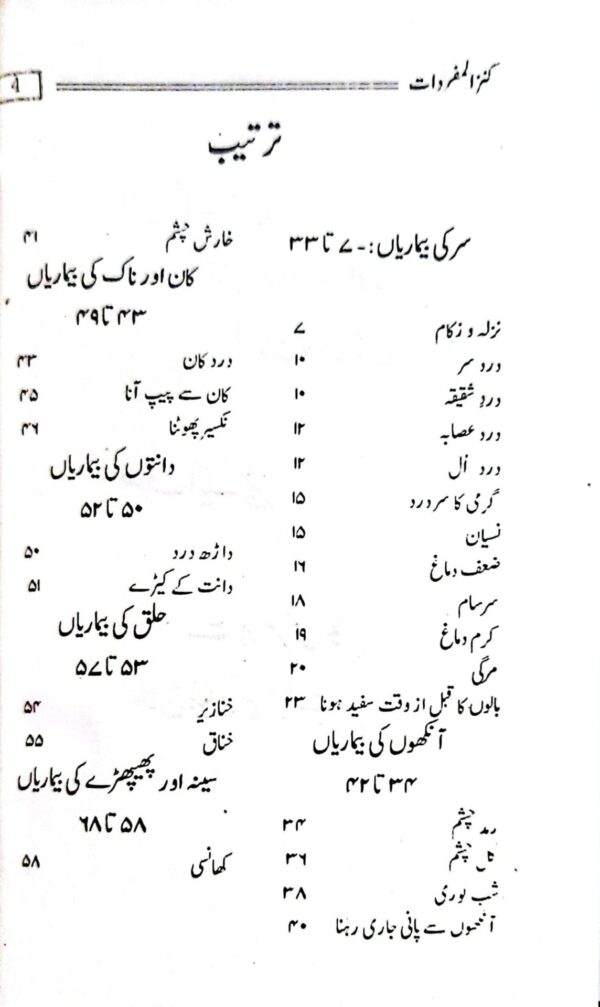 کنزالمفردات
4
ترتیب
سر کی بیماریاں:- ۷ تا ۳۳
نزلہ و زکام ۷
درد سر ۱۰
درد شقیقہ ۱۰
درد عصابہ ۱۲
درد اُل ۱۲
گرمی کا سر درد ۱۵
نسیان ۱۵
ضعف دماغ ۱۶
سرسام ۱۸
کرم دماغ ۱۹
مرگی ۲۰
بالوں کا قبل از وقت سفید ہونا ۲۳
آنکھوں کی بیماریاں
۳۴ تا ۴۲
رمد چشم ۳۴
چشم ۳۶
شب ۳۸
آنکھوں سے پانی جاری رہنا ۴۰
خارش چشم ۴۱
کان اور ناک کی بیماریاں
۴۳ تا ۴۹
درد کان ۴۳
کان سے پیپ آنا ۴۵
نکسیر پھوٹنا ۴۶
دانتوں کی بیماریاں
۵۰ تا ۵۲
داڑھ درد ۵۰
دانت کے کیڑے ۵۱
حلق کی بیماریاں
۵۳ تا ۵۷
خنازیر ۵۴
خناق ۵۵
سینہ اور پھیپھڑے کی بیماریاں
۵۸ تا ۶۸
کھانسی ۵۸